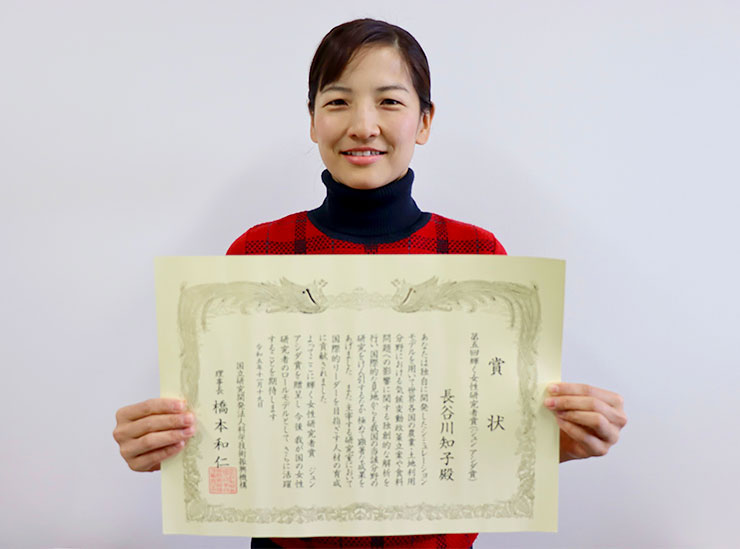 賞状
第五回輝く女性研究者賞(ジュン アシダ賞)
長谷川知子殿
あなたは独自に開発したシミュレーション
モデルを用いて世界各国の農業・土地利用
分野における気候変動政策立案や食料
問題への影響に関する独創的な解析を
行い国際的な見地からも我国の当該分野の
研究をけん引するなど極めて顕著な成果を
あげました また 主宰する研究室において
国際的リーダーを目指す人材の育成
に貢献されました
よってここに輝く女性研究者賞 ジュン
アシダ賞を贈呈し 今後 我が国の女性
研究者のロールモデルとして さらに活躍
することを期待します
令和五年十一月十九日
国立研究開発法人科学技術振興機構
理事長 橋本和仁